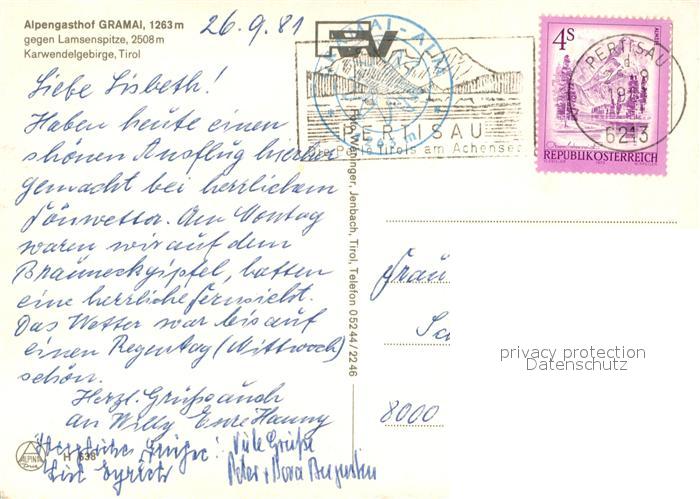 Alpengasthof GRAMAI, 1263 m
gegen Lamsenspitze, 2508 m
Karwendelgebirge, Tirol
26.9.81
Liebe Lisbeth!
Haben heute einen
schönen Ausflug hierher
gemacht bei herrlichem
Fönwetter. Am Montag
waren wir auf dem
Brauneckgipfel, hatten
eine herrliche Fernsicht.
Das Wetter war bis auf
einen Regentag (Mittwoch)
schön.
Herzl. Grüße auch
an Willy Eure Hanny
Viele Grüße
Peter + Dora Augustin
H 638
ALPINA
Jenbach, Tirol, Telefon 05244/2246
GRAMAI-ALM
PERTISAU
Die Perle Tirols am Achensee
4S
REPUBLIK ÖSTERREICH
PERTISAU
6213
Frau
8000
privacy protection
Datenschutz